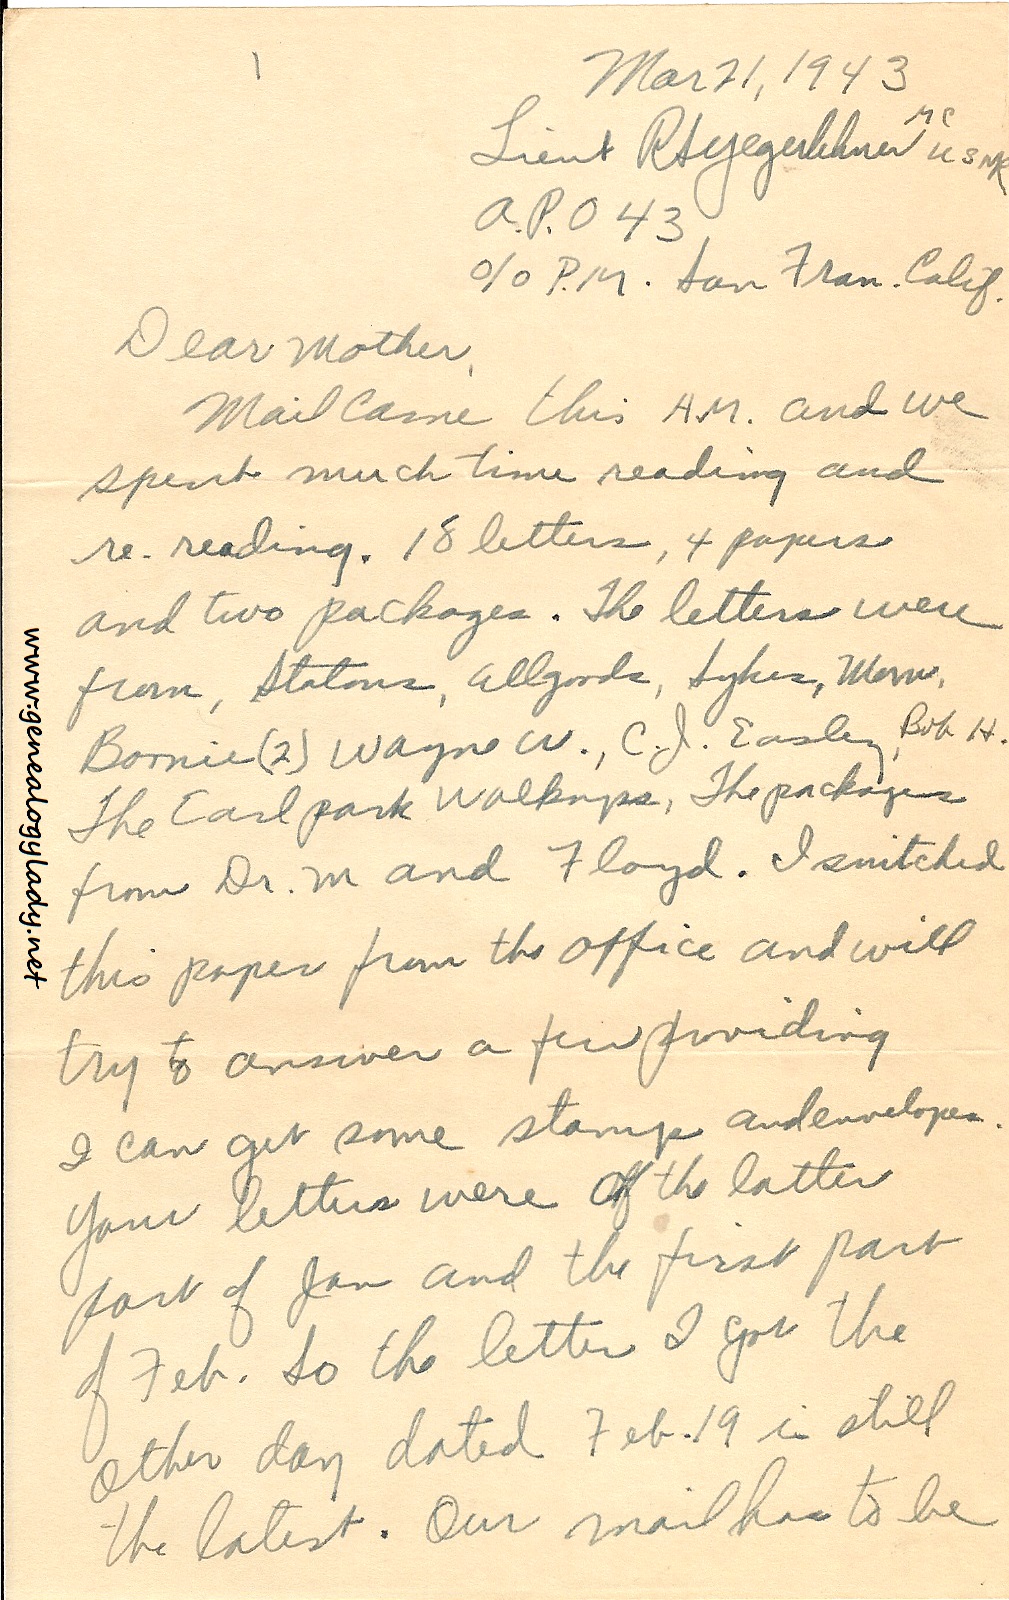 1
Mar 21, 1943
Lieut RHYegerlehner MC USNR
A.P.O 43
c/o P.M. San Fran. Calif.
Dear Mother,
Mail Came this A.M. and we
spent much time reading and
re-reading. 18 letters, 4 papers
and two packages. The letters were
from, Statons, Allgoods, Sykes, Mom,
Bornie (2) Wayne W., C.J. Easley, Bob H.
The Earl park Walkups, The packages
from Dr. M and Floyd. I snitched
this paper from the office and will
try to answer a few providing
I can get some stamps and envelopes.
Your letters were of the latter
part of Jan and the first part
of Feb. So the letter I got the
other day dated Feb. 19 is still
the latest. Our mail has to be
www.genealogylady.net